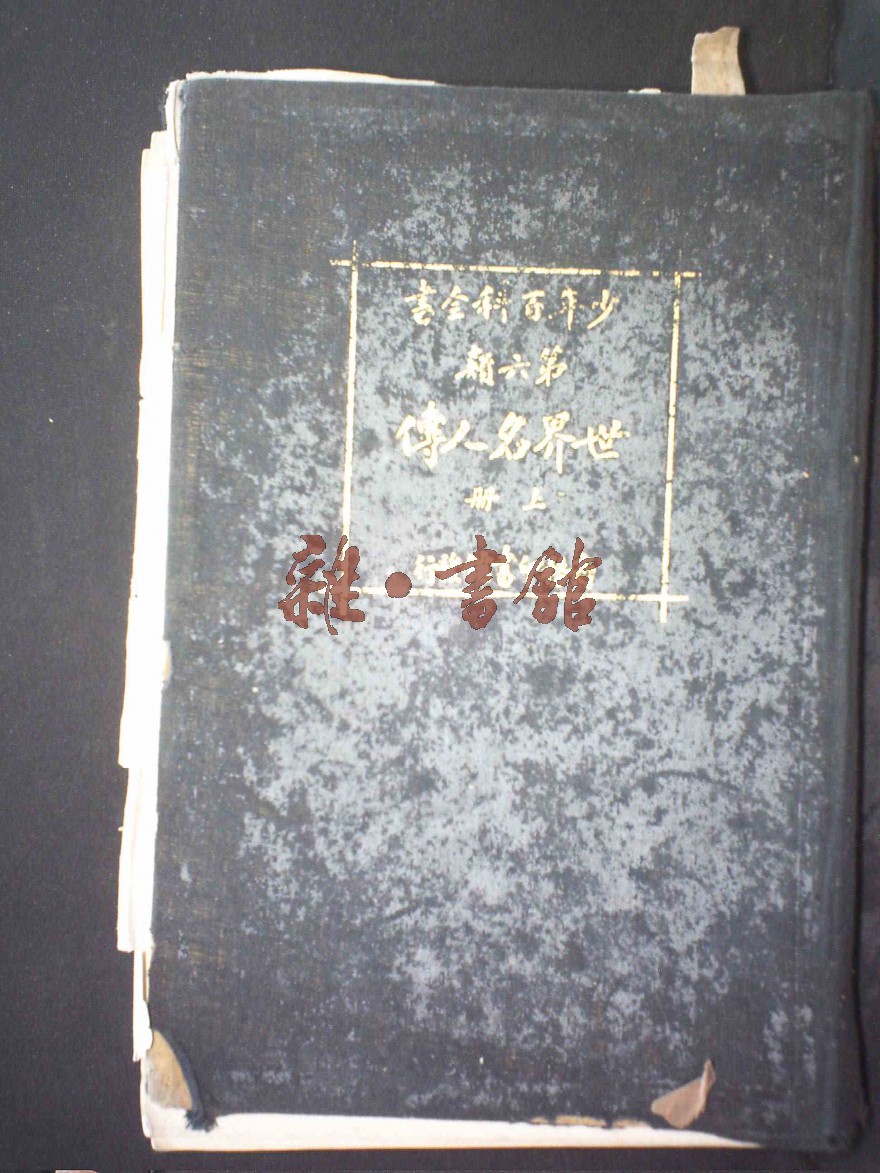 少年百科全書
第六類
世界名人傳
上冊
雜·書館